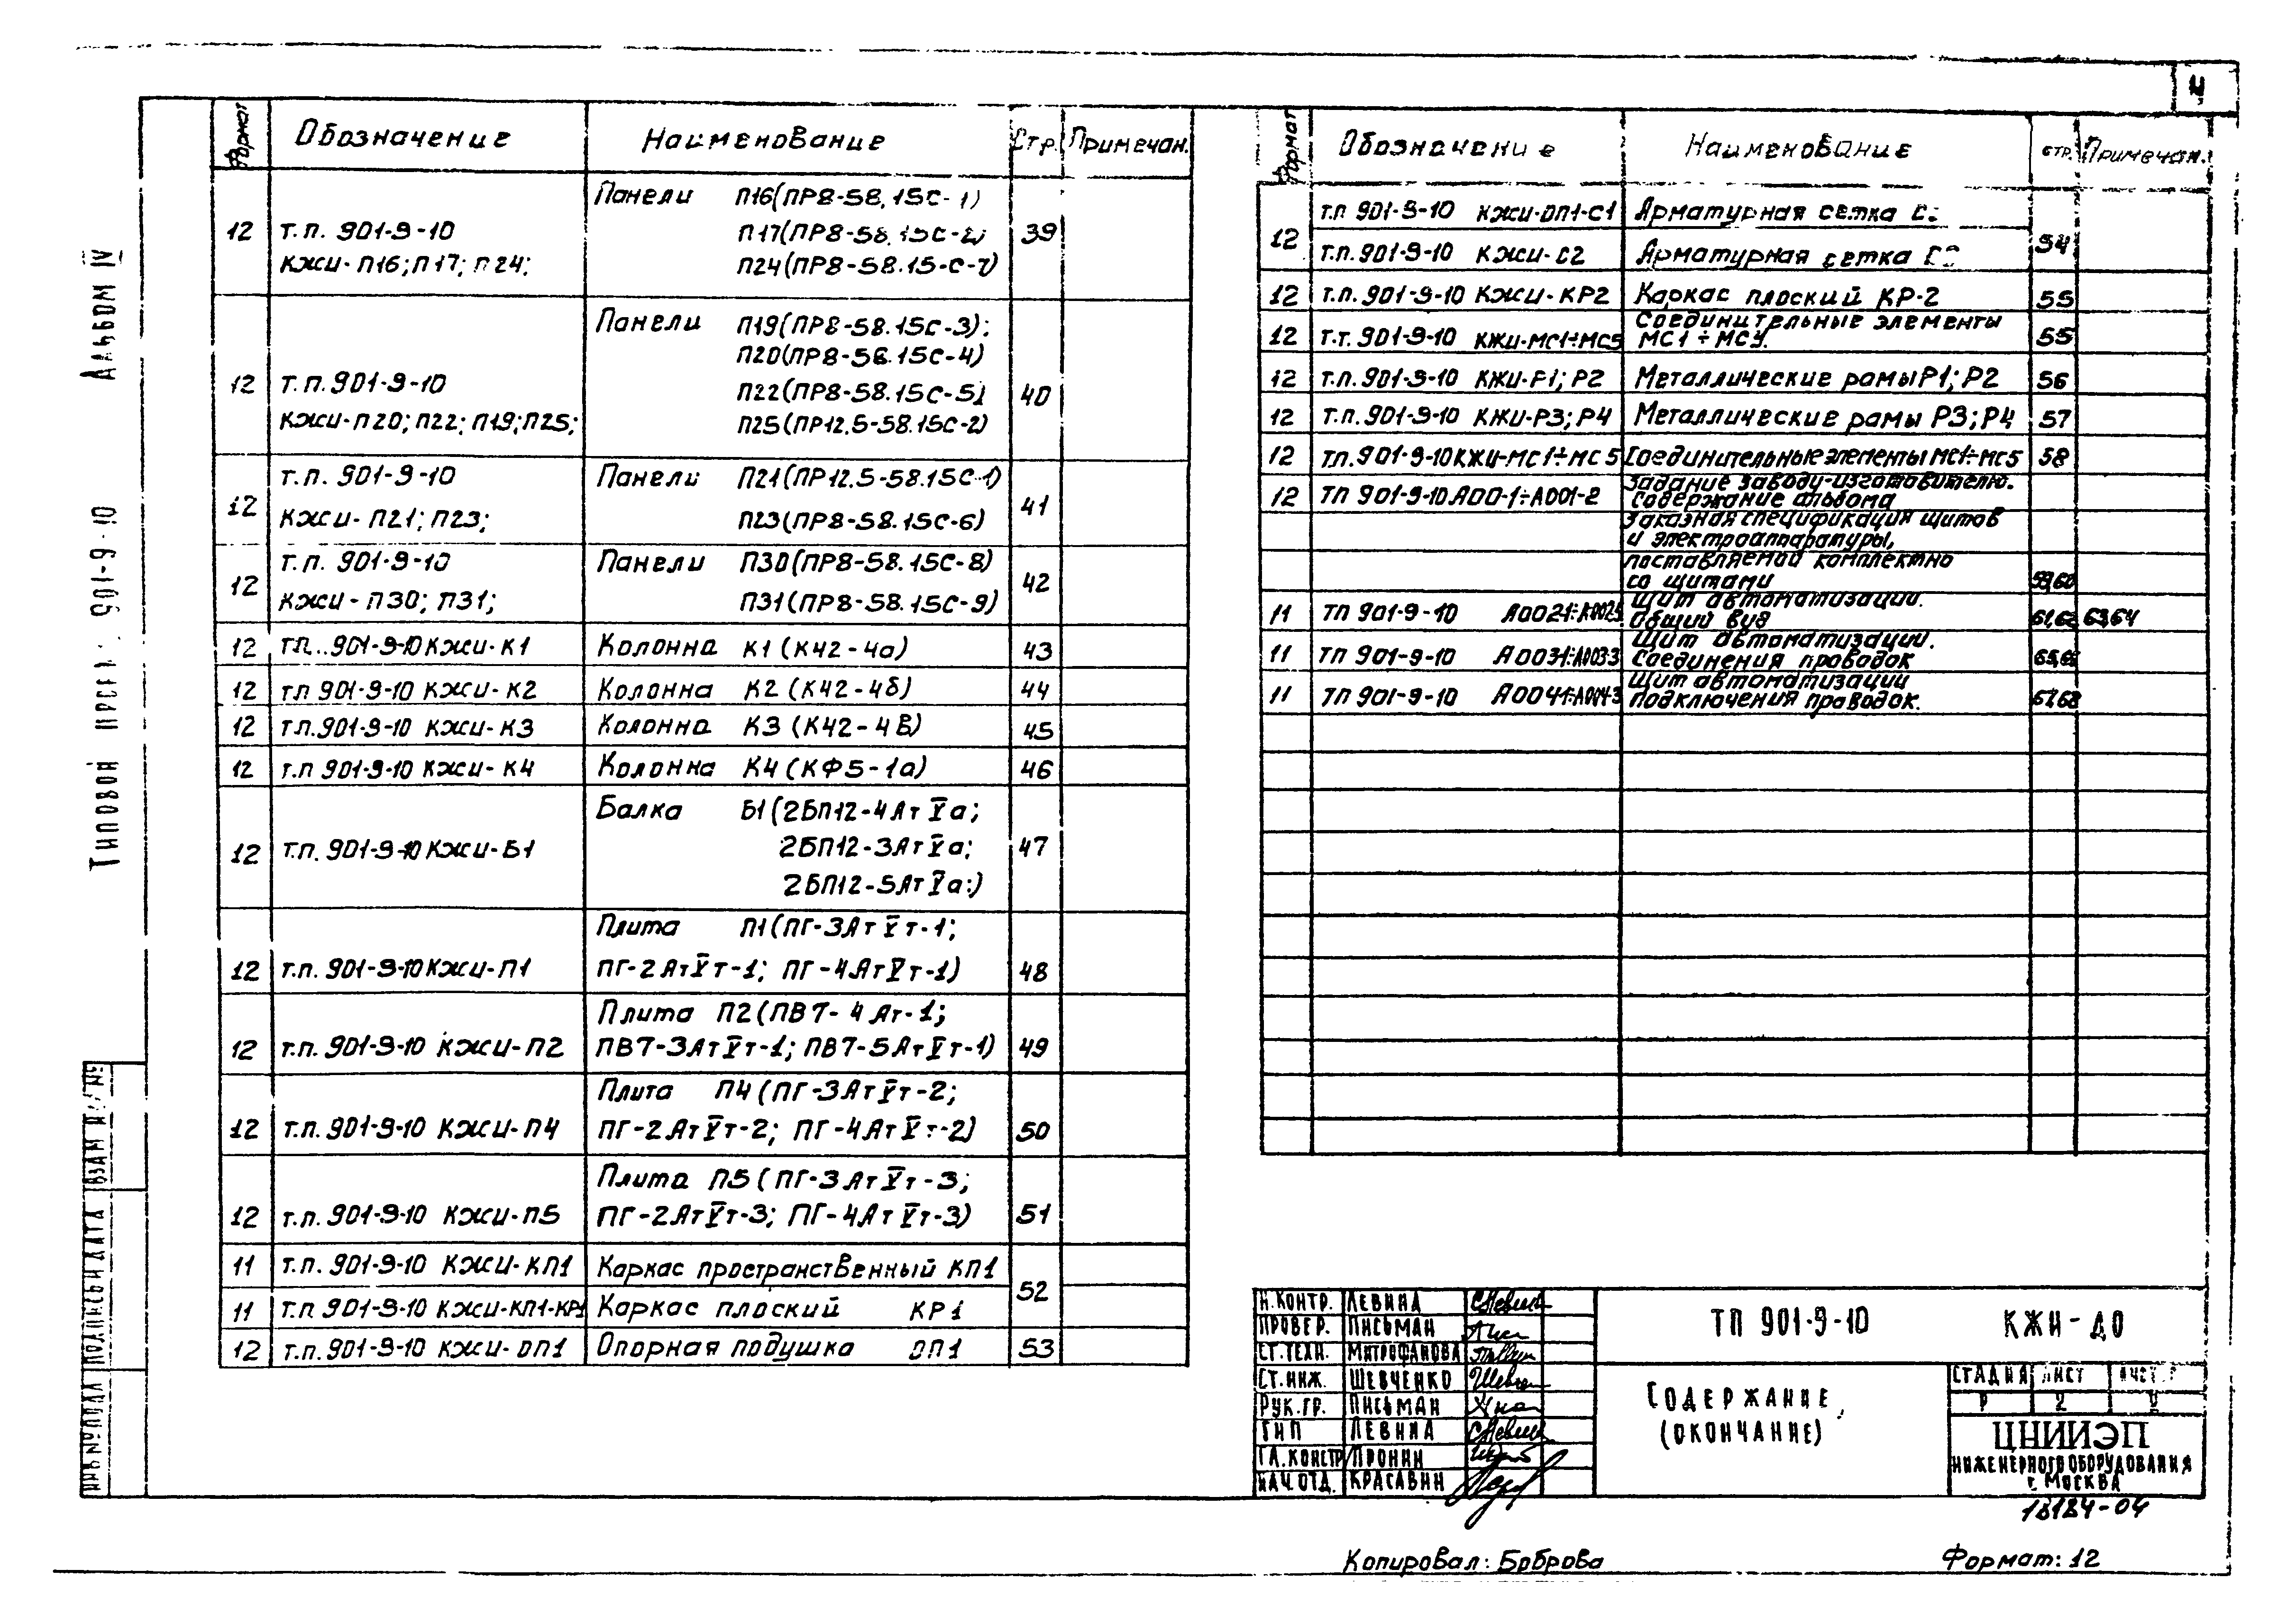 4
Альбом IV
Типовой 901-9-10
Формат Обозначение Наименование Стр. Примечан.
Панели П16(ПР8-58.15С-1)
12 т.п. 901-9-10 П17(ПР8-58.15С-2) 39
КЖИ-П16; П17; П24; П24(ПР8-58.15-С-7)
Панели П19(ПР8-58.15С-3);
П20(ПР8-58.15С-4)
12 т.п. 901-9-10 П22(ПР8-58.15С-5) 40
КЖИ-П20; П22; П19; П25; П25(ПР12.5-58.15С-2)
т.п. 901-9-10 Панели П21(ПР12.5-58.15С-1)
12 КЖИ-П21; П23; П23(ПР8-58.15С-6) 41
т.п. 901-9-10 Панели П30(ПР8-58.15С-8)
12 КЖИ-П30; П31; П31(ПР8-58.15С-9) 42
12 т.п. 901-9-10 КЖИ-К1 Колонна К1 (К42-4а) 43
12 т.п 901-9-10 КЖИ-К2 Колонна К2 (К42-4б) 44
12 т.п. 901-9-10 КЖИ-К3 Колонна К3 (К42-4В) 45
12 т.п 901-9-10 КЖИ-К4 Колонна К4 (КФ5-1а) 46
Балка Б1(2БП12-4АтVа;
12 т.п. 901-9-10 КЖИ-Б1 2БП12-3АтVа; 47
2БП12-5АтVа;)
Плита П1(ПГ-3АтVт-1;
12 т.п. 901-9-10 КЖИ-П1 ПГ-2АтVт-1; ПГ-4АтVт-1) 48
Плита П2(ПВ7-4Ат-1;
12 т.п. 901-9-10 КЖИ-П2 ПВ7-3АтVт-1; ПВ7-5АтVт-1) 49
Плита П4 (ПГ-3АтVт-2;
12 т.п. 901-9-10 КЖИ-П4 ПГ-2АтVт-2; ПГ-4АтVт-2) 50
Плита П5 (ПГ-3АтVт-3;
12 т.п. 901-9-10 КЖИ-П5 ПГ-2АтVт-3; ПГ-4АтVт-3) 51
11 т.п. 901-9-10 КЖИ-КП1 Каркас пространственный КП1
52
11 т.п 901-9-10 КЖИ-КП1-КР1 Каркас плоский КР1
12 т.п. 901-9-10 КЖИ-ОП1 Опорная подушка ОП1 53
Формат Обозначение Наименование стр. Примечан.
т.п 901-9-10 КЖИ-ОП1-С1 Арматурная сетка
12 54
т.п. 901-9-10 КЖИ-С2 Арматурная сетка
12 т.п. 901-9-10 КЖИ-КР2 Каркас плоский КР-2 55
Соединительные элементы
12 т.т. 901-9-10 КЖИ-МС1÷МС5 МС1÷МСУ. 55
12 т.п. 901-9-10 КЖИ-Р1; Р2 Металлические рамы Р1; Р2 56
12 т.п. 901-9-10 КЖИ-Р3; Р4 Металлические рамы Р3; Р4 57
12 т.п. 901-9-10 КЖИ-МС1÷МС5 Соединительные элементы МС1÷МС5 58
Задание заводу-изготовителю.
12 ТП 901-9-10 А00-1÷А001-2 Содержание альбома
Заказная спецификация щитов
и электроаппаратуры,
поставляемой комплектно
со щитами 59,60
Щит автоматизации.
11 ТП 901-9-10 А0021÷А0025 Общий вид 61,62 63,64
Щит автоматизации.
11 ТП 901-9-10 А0031÷А0033 Соединения проводок 65,66
Щит автоматизации
11 ТП 901-9-10 А0041÷А0043 подключения проводок. 67,68
Инв № подл Подпись и дата Взам
Н.контр. Левина
Провер. Письман
Ст.техн. Митрофанова
Ст.инж. Шевченко
Рук.гр. Письман
ГИП Левина
Гл.констр Пронин
Нач.отд. Красавин
ТП 901-9-10 КЖИ-ДО
Содержание
(окончание)
Стадия Лист
Р 2
ЦНИИЭП
инженерного оборудования
г. Москва
18184-04
Копировал: Боброва Формат: 12